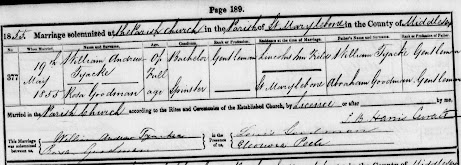 Page 189.
1855. Marriage solemnized at the Parish Church in the Parish of St Marylebone in the County of Middlesex
No. When Married. Name and Surname. Age. Condition. Rank or Profession. Residence at the time of Marriage. Father's Name and Surname. Rank or Profession of Father.
377 19th May 1855 William Andrew Tyacke Of Full age Bachelor Gentleman Lincolns Inn Fields William Tyacke Gentleman
Rosa Goodman Spinster St Marylebone Abraham Goodman Gentleman
Married in the Parish Church according to the Rites and Ceremonies of the Established Church, by Licence or after by me,
Harris Curate
This Marriage was solemnized between us, William Andrew Tyacke in the Presence of us, Goodman
Rosa Goodman Eleonora